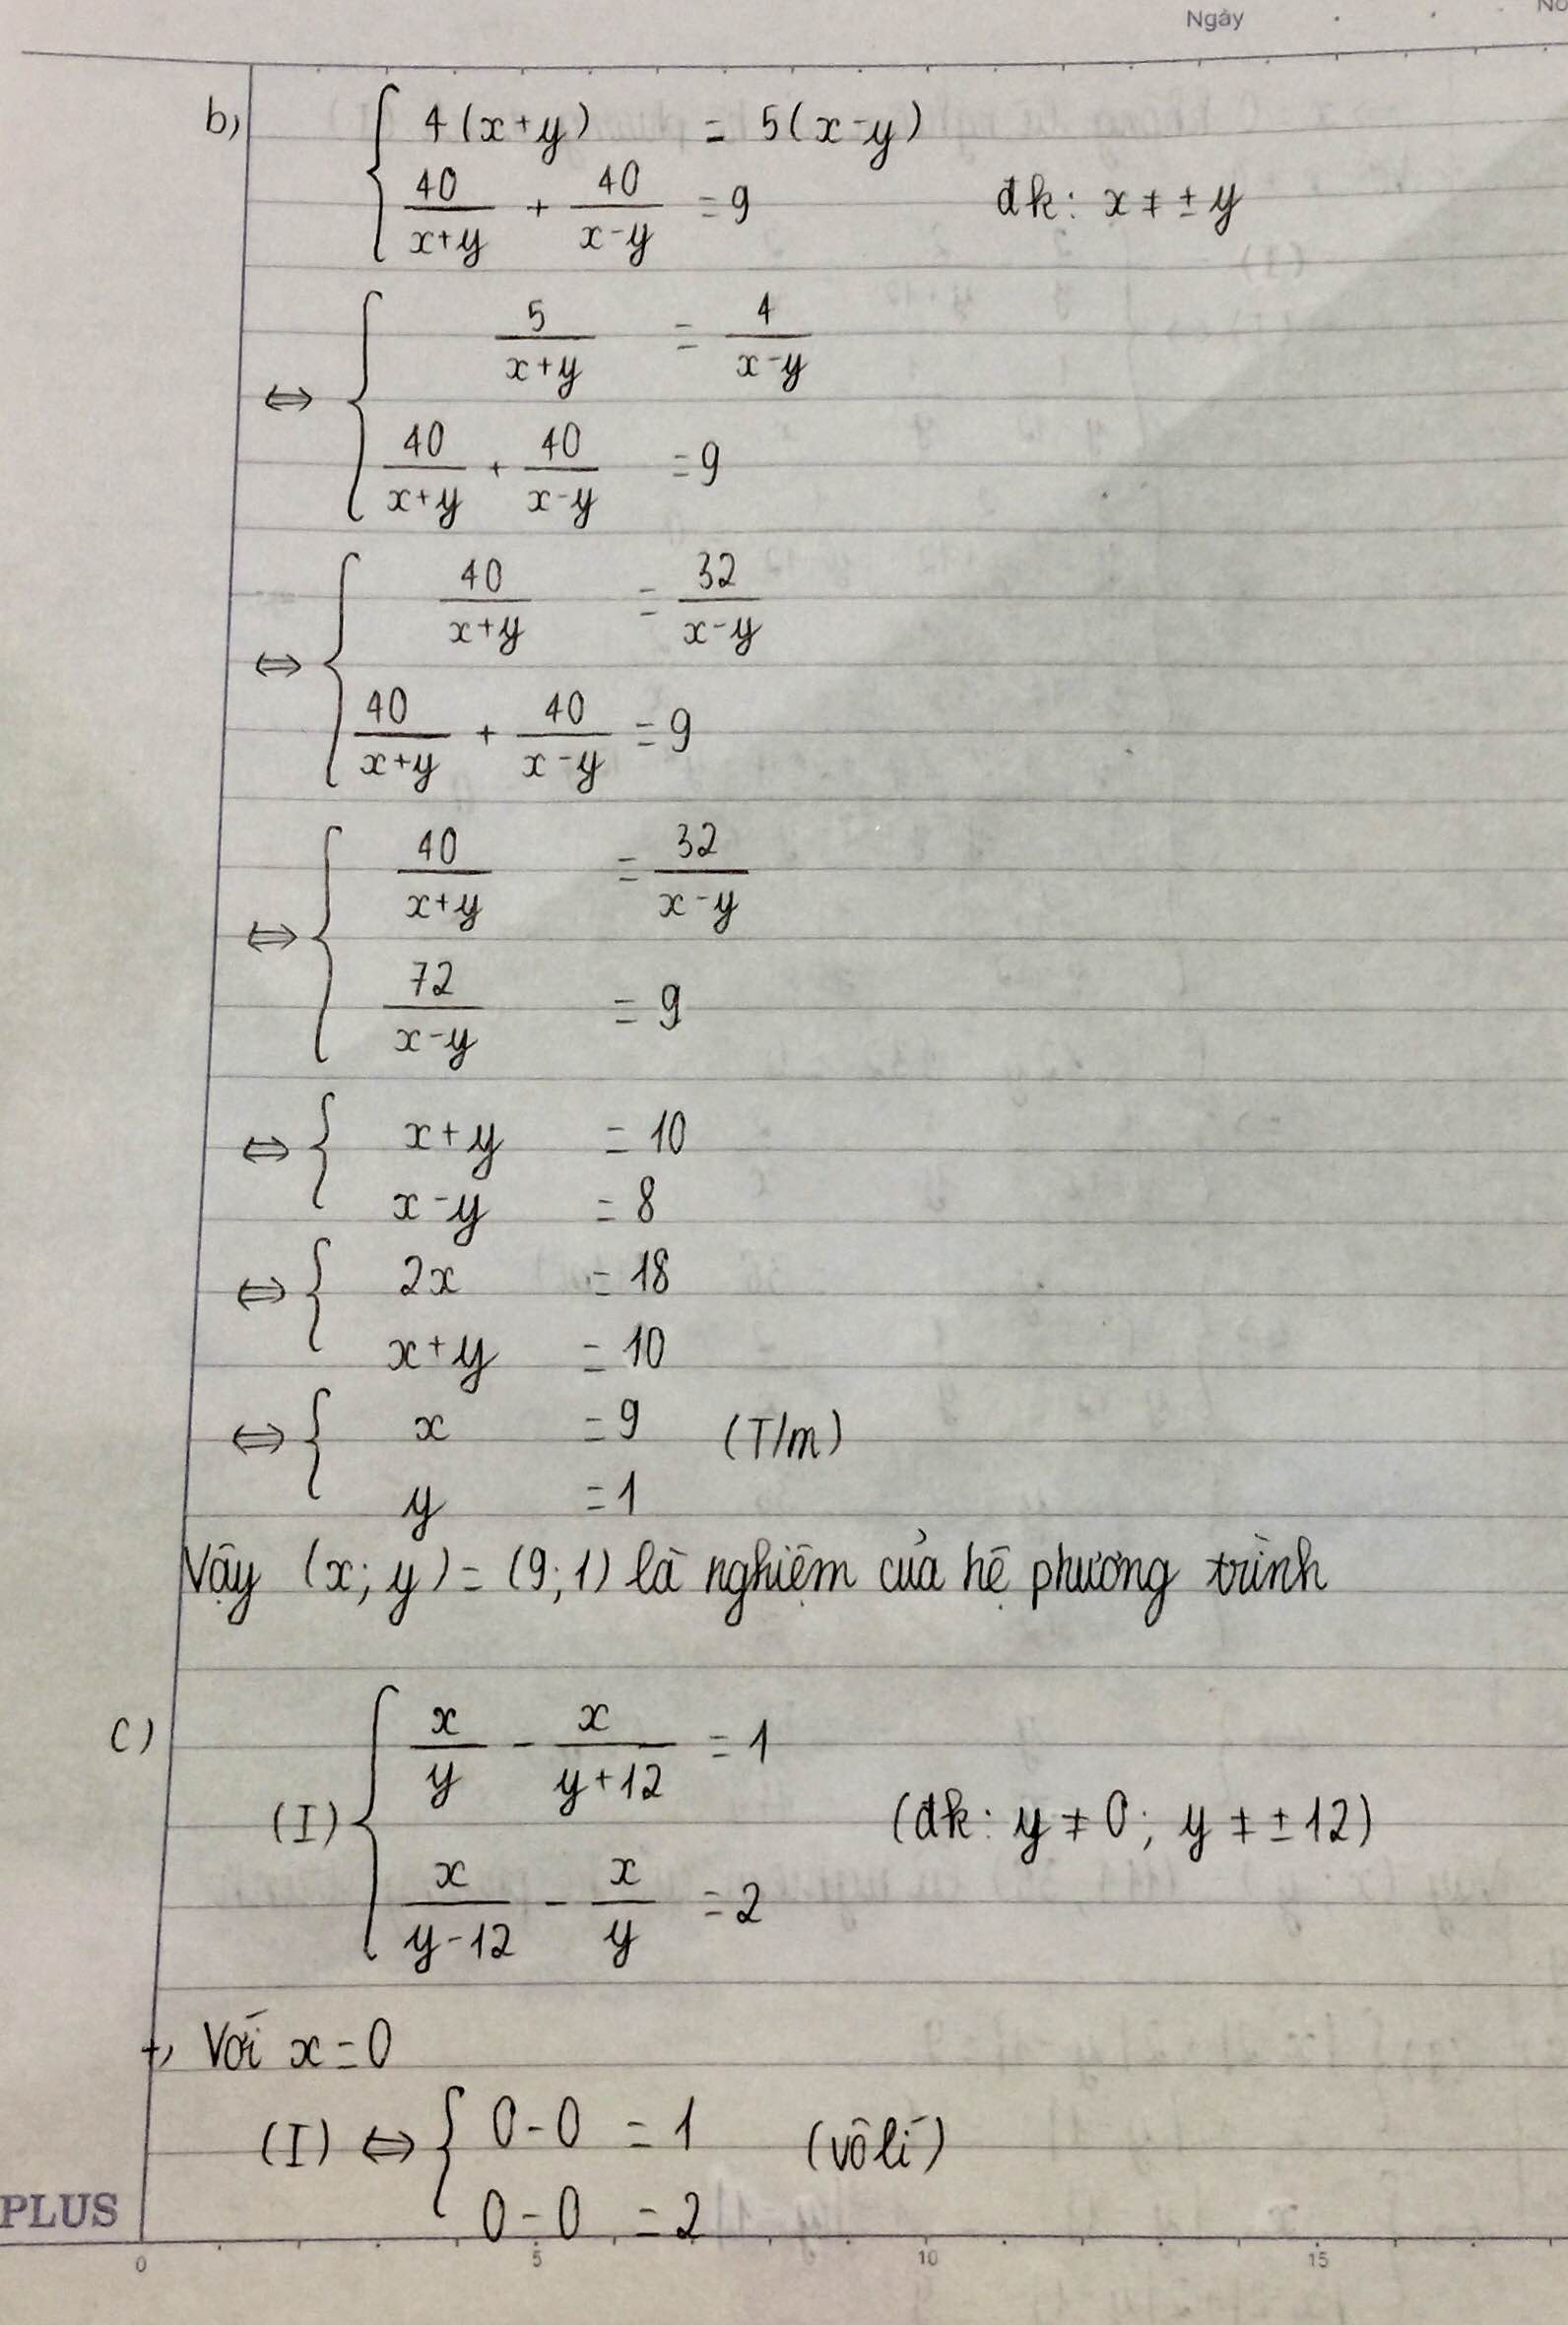 Ngày
b) { 4(x+y) = 5(x-y)
40/(x+y) + 40/(x-y) = 9 đk: x ≠ ± y
⇔ { 5/(x+y) = 4/(x-y)
40/(x+y) + 40/(x-y) = 9
⇔ { 40/(x+y) = 32/(x-y)
40/(x+y) + 40/(x-y) = 9
⇔ { 40/(x+y) = 32/(x-y)
72/(x-y) = 9
⇔ { x+y = 10
x-y = 8
⇔ { 2x = 18
x+y = 10
⇔ { x = 9 (T/m)
y = 1
Vậy (x; y) = (9; 1) là nghiệm của hệ phương trình
c) (I) { x/y - x/(y+12) = 1
(đk: y ≠ 0; y ≠ ± 12)
x/(y-12) - x/y = 2
+, Với x = 0
(I) ⇔ { 0 - 0 = 1 (vô lí)
0 - 0 = 2
PLUS
0 5 10 15